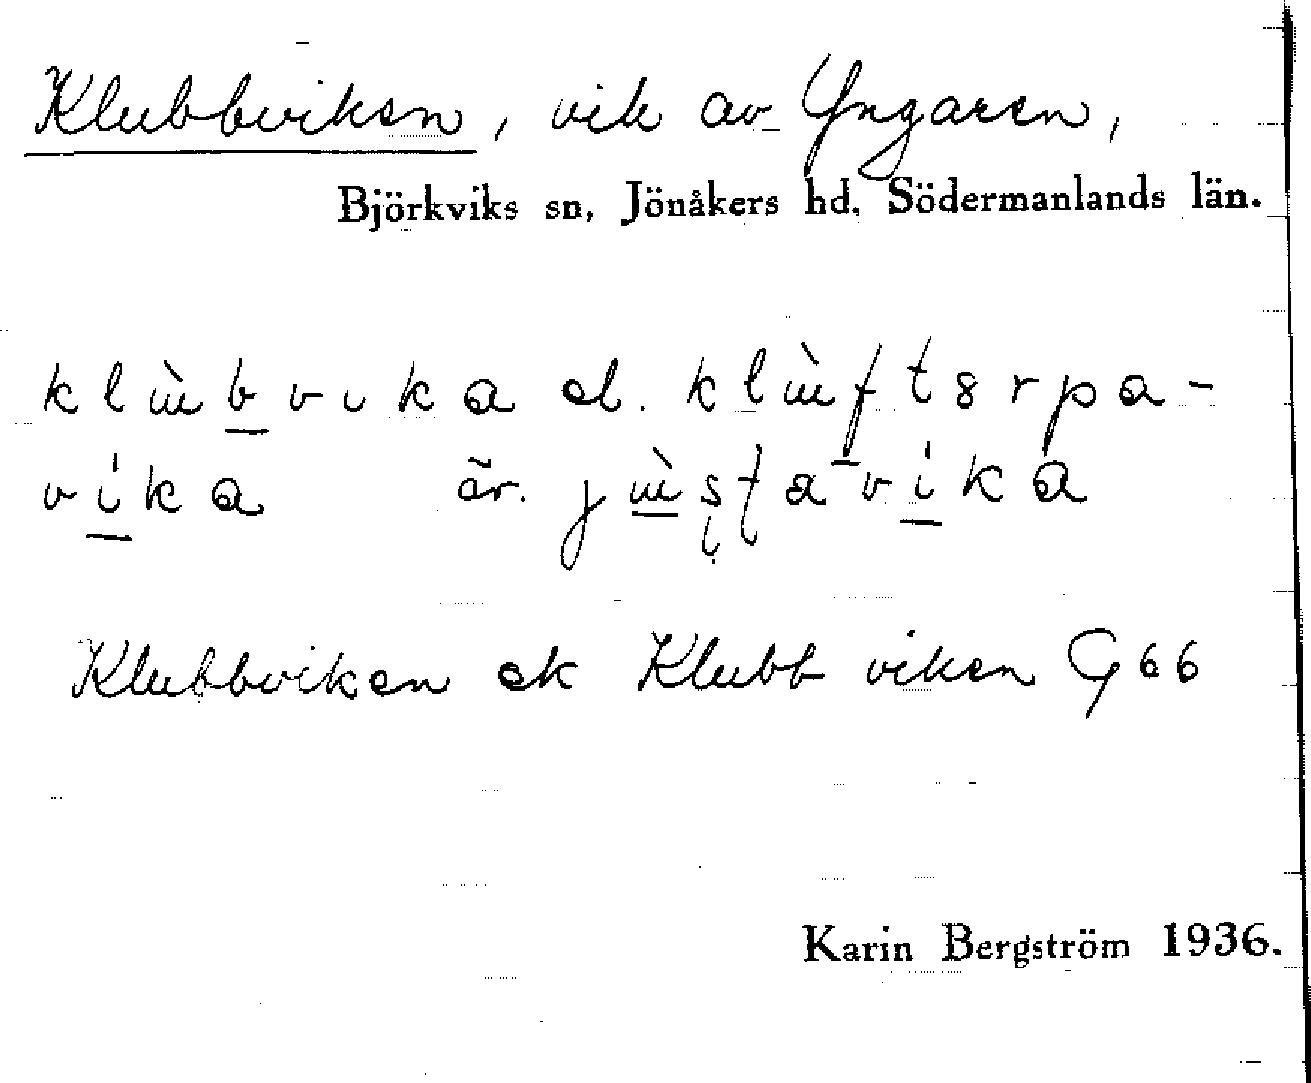 Klubbviken, vik av Yngaren,
Björkviks sn, Jönåkers hd, Södermanlands län.
klɯ̀bvıka el. klɯ̀ftərpa-
vika är. jɯ̀ştavika
Klubbviken ek Klubb viken G 66
Karin Bergström 1936.